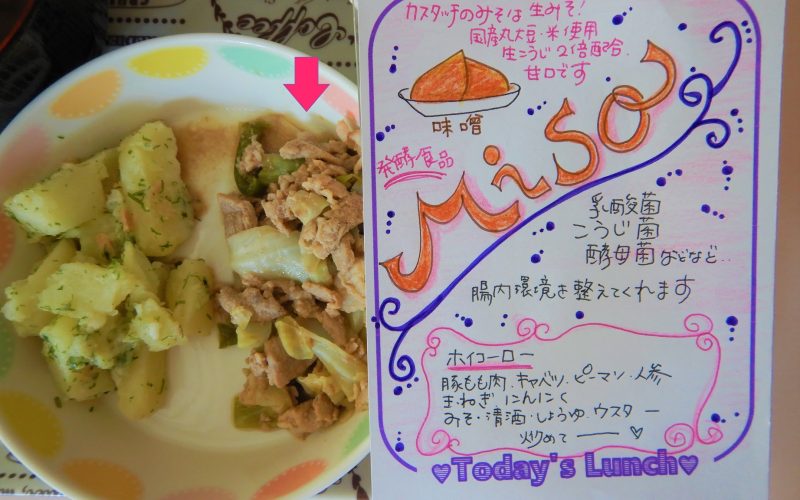 Coffee
カスタッチのみそは 生みそ!
国産丸大豆・米使用
生こうじ2倍配合
甘口です
味噌
発酵食品
Miso
乳酸菌
こうじ菌
酵母菌などなど..
腸内環境を整えてくれます
ホイコーロー
豚もも肉・キャベツ・ピーマン・人参
玉ねぎ にんにく
みそ・清酒・しょうゆ・ウスター
炒めて
Today's Lunch